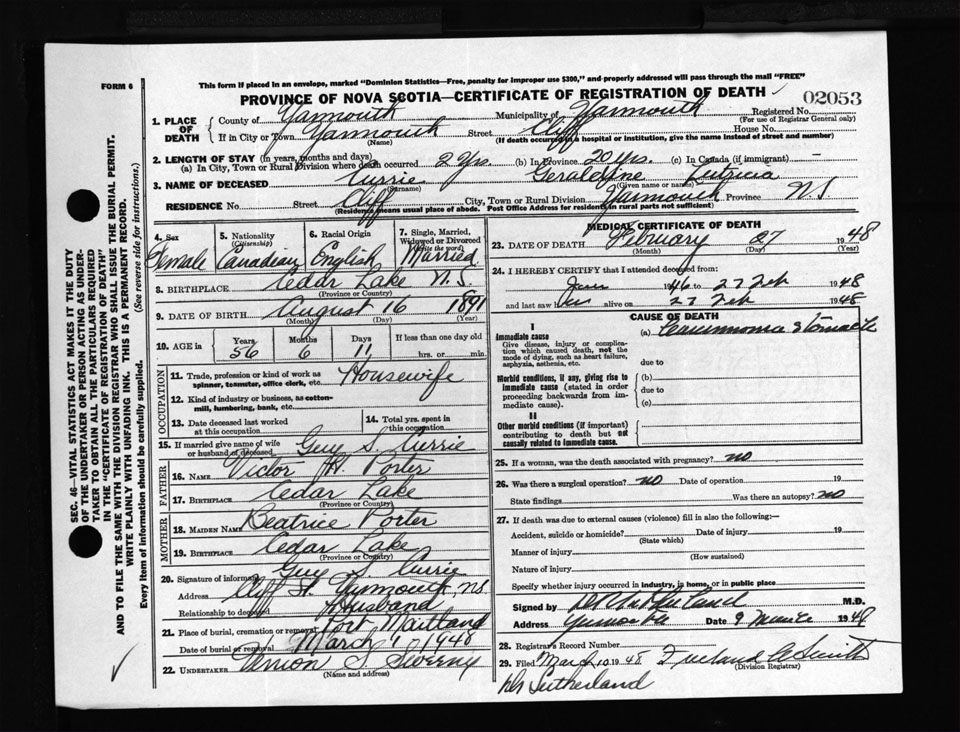 FORM 6
This form if placed in an envelope, marked "Dominion Statistics—Free, penalty for improper use $300," and properly addressed will pass through the mail "FREE"
PROVINCE OF NOVA SCOTIA—CERTIFICATE OF REGISTRATION OF DEATH
02053
1. PLACE OF DEATH
County of Yarmouth Municipality of Yarmouth Registered No.
(For use of Registrar General only)
If in City or Town Yarmouth Street Cliff House No.
(Name) (If death occurred in a hospital or institution, give the name instead of street and number)
2. LENGTH OF STAY (in years, months and days)
(a) In City, Town or Rural Division where death occurred 2 Yrs. (b) In Province 20 Yrs. (c) In Canada (if immigrant) —
3. NAME OF DECEASED Currie Geraldine
(Surname) (Given name or names)
RESIDENCE No. Street Cliff City, Town or Rural Division Yarmouth Province N.S.
(Residence means usual place of abode. Post Office Address for residents in rural parts not sufficient)
4. Sex Female
5. Nationality (Citizenship) Canadian
6. Racial Origin English
7. Single, Married, Widowed or Divorced (Write the word) Married
8. BIRTHPLACE Cedar Lake N.S.
(Province or Country)
9. DATE OF BIRTH August 16 1891
(Month) (Day) (Year)
10. AGE in Years Months Days If less than one day old
56 6 11 hrs. or min.
OCCUPATION
11. Trade, profession or kind of work as spinner, teamster, office clerk, etc. Housewife
12. Kind of industry or business, as cotton-mill, lumbering, bank, etc.
13. Date deceased last worked at this occupation
14. Total yrs. spent in this occupation
15. If married give name of wife or husband of deceased Guy S. Currie
FATHER
16. NAME Victor H. Porter
17. BIRTHPLACE Cedar Lake
(Province or Country)
MOTHER
18. MAIDEN NAME Beatrice Porter
19. BIRTHPLACE Cedar Lake
(Province or Country)
20. Signature of informant Guy S. Currie
Address Cliff St. Yarmouth, N.S.
Relationship to deceased Husband
21. Place of burial, cremation or removal Port Maitland
Date of burial or removal March 1 1948
22. UNDERTAKER Vernon S. Sweeny
(Name and address)
MEDICAL CERTIFICATE OF DEATH
23. DATE OF DEATH February 27 1948
(Month) (Day) (Year)
24. I HEREBY CERTIFY that I attended deceased from:
Jan 1946 to 27 Feb 1948
and last saw her alive on 27 Feb 1948
CAUSE OF DEATH
I
Immediate cause
Give disease, injury or complication which caused death, not the mode of dying, such as heart failure, asphyxia, asthenia, etc.
(a) stomach
due to
Morbid conditions, if any, giving rise to immediate cause (stated in order proceeding backwards from immediate cause).
(b)
due to
(c)
II
Other morbid conditions (if important) contributing to death but not causally related to immediate cause.
25. If a woman, was the death associated with pregnancy? no
26. Was there a surgical operation? no Date of operation 19
State findings Was there an autopsy? no
27. If death was due to external causes (violence) fill in also the following:—
Accident, suicide or homicide? Date of injury 19
(State which)
Manner of injury
(How sustained)
Nature of injury
Specify whether injury occurred in industry, in home, or in public place
Signed by Sutherland M.D.
Address Yarmouth Date 9 March 1948
28. Registrar's Record Number
29. Filed March 10 1948 Smith
(Division Registrar)
Sutherland
SEC. 46—VITAL STATISTICS ACT MAKES IT THE DUTY
OF THE UNDERTAKER OR PERSON ACTING AS UNDER-
TAKER TO OBTAIN ALL THE PARTICULARS REQUIRED
IN THE "CERTIFICATE OF REGISTRATION OF DEATH"
AND TO FILE THE SAME WITH THE DIVISION REGISTRAR WHO SHALL ISSUE THE BURIAL PERMIT.
WRITE PLAINLY WITH UNFADING INK. THIS IS A PERMANENT RECORD.
Every item of information should be carefully supplied. (See reverse side for instructions.)